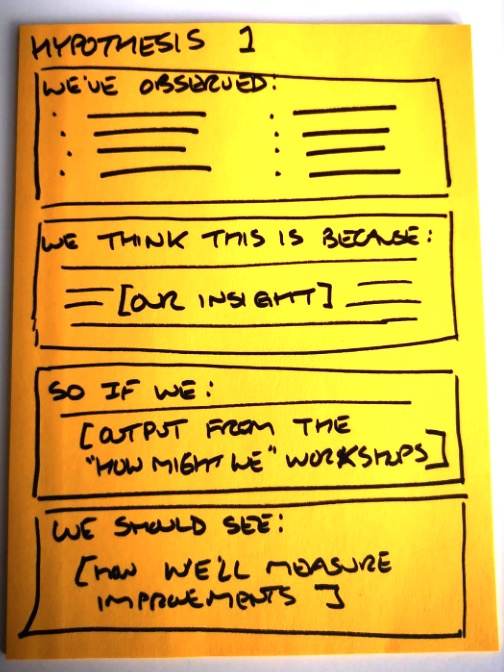 HYPOTHESIS 1
WE'VE OBSERVED:
WE THINK THIS IS BECAUSE:
[OUR INSIGHT]
SO IF WE:
[OUTPUT FROM THE
"HOW MIGHT WE" WORKSHOPS]
WE SHOULD SEE:
[HOW WE'LL MEASURE
IMPROVEMENTS]